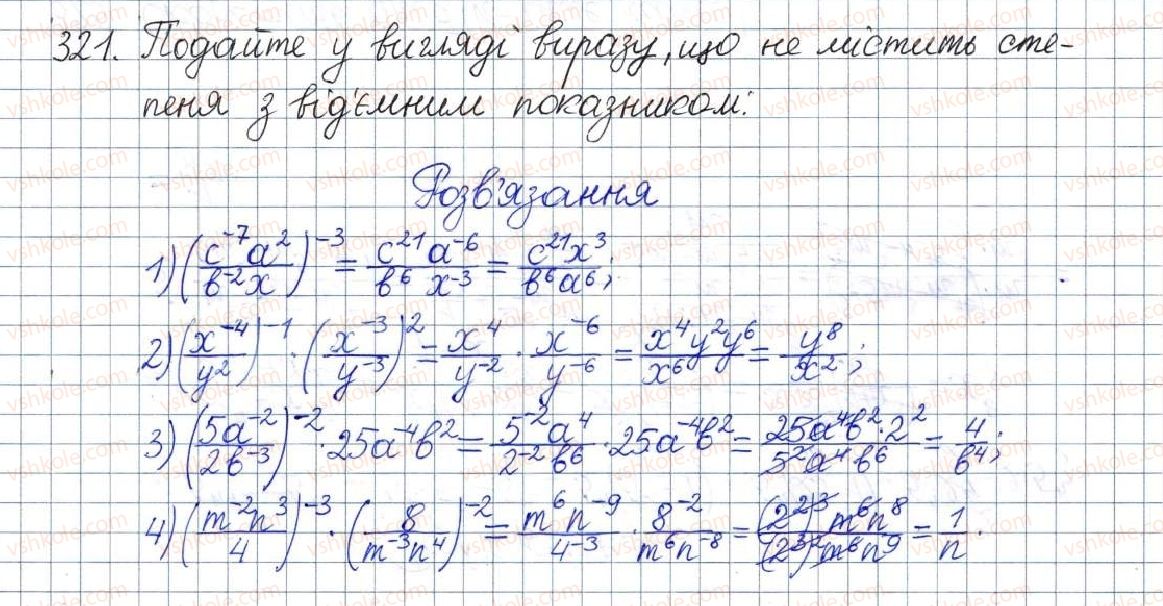 321. Подайте у вигляді виразу, що не містить сте-
пеня з від'ємним показником:
Розв'язання
1) (c⁻⁷a²/в⁻²x)⁻³ = c²¹a⁻⁶/в⁶ x⁻³ = c²¹x³/в⁶a⁶;
2) (x⁻⁴/y²)⁻¹ · (x⁻³/y⁻³)² = x⁴/y⁻² · x⁻⁶/y⁻⁶ = x⁴y²y⁶/x⁶ = y⁸/x²;
3) (5a⁻²/2в⁻³)⁻² · 25a⁻⁴в² = 5⁻²a⁴/2⁻²в⁶ · 25a⁻⁴в² = 25a⁴в²·2²/5²a⁴в⁶ = 4/в⁴;
4) (m⁻²n³/4)⁻³ · (8/m⁻³n⁴)⁻² = m⁶n⁻⁹/4⁻³ · 8⁻²/m⁶n⁻⁸ = (2²)³m⁶n⁸/(2³)²m⁶n⁹ = 1/n.